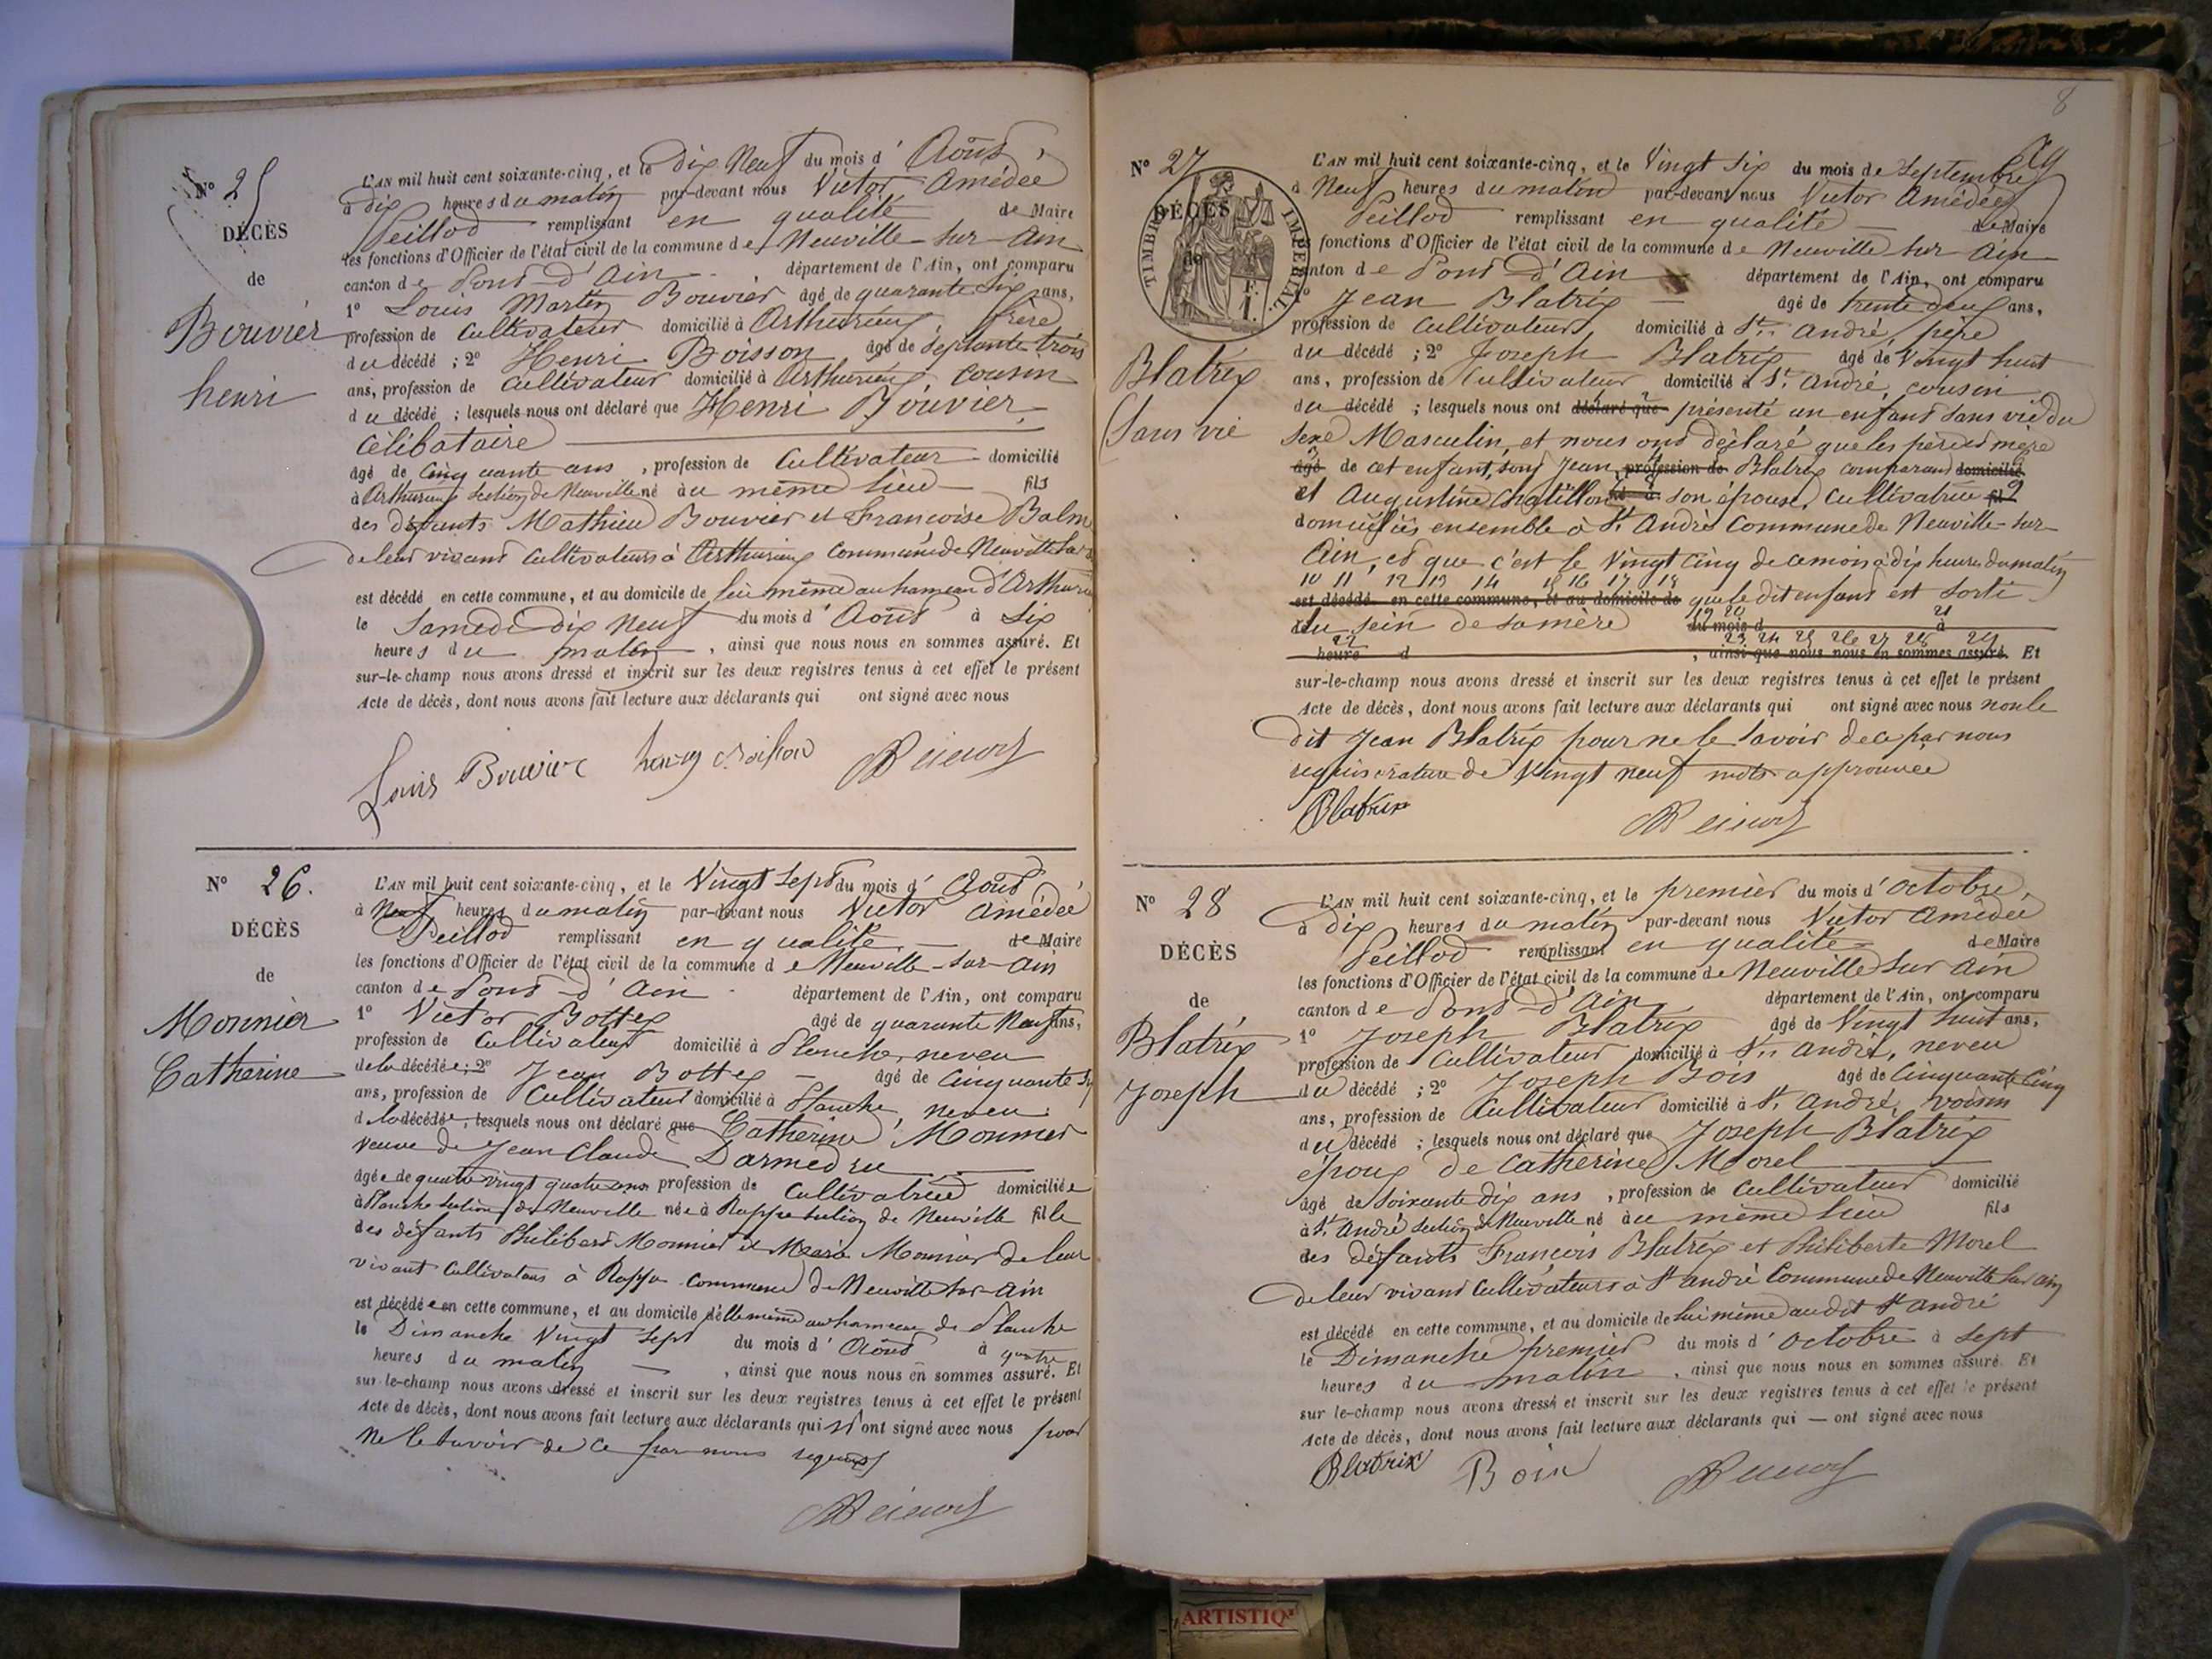 N° 25
DÉCÈS
de
Bouvier
henri
L'AN mil huit cent soixante-cinq, et le dix Neuf du mois d'Août,
à dix heures du matin par-devant nous Victor Amédée
Peillod remplissant en qualité de Maire
les fonctions d'Officier de l'état civil de la commune de Neuville-sur-Ain
canton de Pont-d'Ain département de l'Ain, ont comparu
1° Louis Martin Bouvier âgé de quarante six ans,
profession de Cultivateur domicilié à Arthurieux, frère
du décédé ; 2° Henri Boisson âgé de septante trois
ans, profession de Cultivateur domicilié à Arthurieux, cousin
du décédé ; lesquels nous ont déclaré que Henri Bouvier,
Célibataire
âgé de Cinquante ans, profession de Cultivateur domicilié
à Arthurieux section de Neuville né au même lieu fils
des défunts Mathieu Bouvier et Françoise Balm
de leur vivant Cultivateurs à Arthurieux Commune de Neuville sur
est décédé en cette commune, et au domicile de lui même au hameau d'Arthuri
le Samedi dix neuf du mois d'Août à six
heures du matin, ainsi que nous nous en sommes assuré. Et
sur-le-champ nous avons dressé et inscrit sur les deux registres tenus à cet effet le présent
Acte de décès, dont nous avons fait lecture aux déclarants qui ont signé avec nous
Louis Bouvier
N° 26.
DÉCÈS
de
Monnier
Catherine
L'AN mil huit cent soixante-cinq, et le Vingt sept du mois d'Août
à Neuf heures du matin par-devant nous Victor Amédée
Peillod remplissant en qualité de Maire
les fonctions d'Officier de l'état civil de la commune de Neuville-sur-Ain
canton de Pont-d'Ain département de l'Ain, ont comparu
1° Victor Bottex âgé de quarante Neuf ans,
profession de Cultivateur domicilié à Planche, neveu
de la décédée ; 2° Jean Bottex âgé de Cinquante
ans, profession de Cultivateur domicilié à Planche, neveu
de la décédée, lesquels nous ont déclaré que Catherine Monnier
veuve de Jean Claude Darmedru
âgée de quatre vingt quatre ans profession de Cultivatrice domiciliée
à Planche section de Neuville née à Rappe section de Neuville fille
des défunts Philibert Monnier et Marie Monnier de leur
vivant Cultivateurs à Rappe Commune de Neuville sur-Ain
est décédée en cette commune, et au domicile d'elle même au hameau de Planche
le Dimanche Vingt Sept du mois d'Août à quatre
heures du matin, ainsi que nous nous en sommes assuré. Et
sur-le-champ nous avons dressé et inscrit sur les deux registres tenus à cet effet le présent
Acte de décès, dont nous avons fait lecture aux déclarants qui n'ont signé avec nous pour
ne le savoir de ce par nous requis
8
N° 27
DÉCÈS
de
TIMBRE IMPÉRIAL
1 F.
Blatrix
Sans vie
L'AN mil huit cent soixante-cinq, et le Vingt six du mois de Septembre
à Neuf heures du matin par-devant nous Victor Amédée
Peillod remplissant en qualité de Maire
fonctions d'Officier de l'état civil de la commune de Neuville sur Ain
canton de Pont-d'Ain département de l'Ain, ont comparu
1° Jean Blatrix âgé de trente deux ans,
profession de Cultivateur, domicilié à St André, père
du décédé ; 2° Joseph Blatrix âgé de Vingt huit
ans, profession de Cultivateur domicilié à St André, cousin
du décédé ; lesquels nous ont déclaré que présenté un enfant sans vie du
sexe Masculin, et nous ont déclaré que les père et mère
âgé de cet enfant, sont Jean profession de Blatrix comparant domicilié
et Augustine Chatillon né à son épouse, Cultivatrice
domiciliés ensemble à St André Commune de Neuville-sur-
Ain, et que c'est le Vingt cinq de ce mois à dix heures du matin
10 11 12 13 14 15 16 17 18
est décédé en cette commune, et au domicile de que le dit enfant est sorti
19 20 21
du sein de sa mère du mois d à
22 23 24 25 26 27 28 29
heure d , ainsi que nous nous en sommes assuré. Et
sur-le-champ nous avons dressé et inscrit sur les deux registres tenus à cet effet le présent
Acte de décès, dont nous avons fait lecture aux déclarants qui ont signé avec nous non le
dit Jean Blatrix pour ne le savoir de ce par nous
requis rature de Vingt neuf mots approuvée
Blatrix
N° 28
DÉCÈS
de
Blatrix
Joseph
L'AN mil huit cent soixante-cinq, et le premier du mois d'octobre,
à dix heures du matin par-devant nous Victor Amédée
Peillod remplissant en qualité de Maire
les fonctions d'Officier de l'état civil de la commune de Neuville sur Ain
canton de Pont-d'Ain département de l'Ain, ont comparu
1° Joseph Blatrix âgé de Vingt huit ans,
profession de Cultivateur domicilié à St André, neveu
du décédé ; 2° Joseph Bois âgé de Cinquante Cinq
ans, profession de Cultivateur domicilié à St André, voisin
du décédé ; lesquels nous ont déclaré que Joseph Blatrix
époux de Catherine Morel
âgé de soixante dix ans, profession de Cultivateur domicilié
à St André section de Neuville né au même lieu fils
des défunts François Blatrix et Philiberte Morel
de leur vivant Cultivateurs à St André Commune de Neuville sur Ain
est décédé en cette commune, et au domicile de lui même audit St André
le Dimanche premier du mois d'octobre à sept
heures du matin, ainsi que nous nous en sommes assuré. Et
sur le-champ nous avons dressé et inscrit sur les deux registres tenus à cet effet le présent
Acte de décès, dont nous avons fait lecture aux déclarants qui — ont signé avec nous
Blatrix Bois
ARTISTIQ